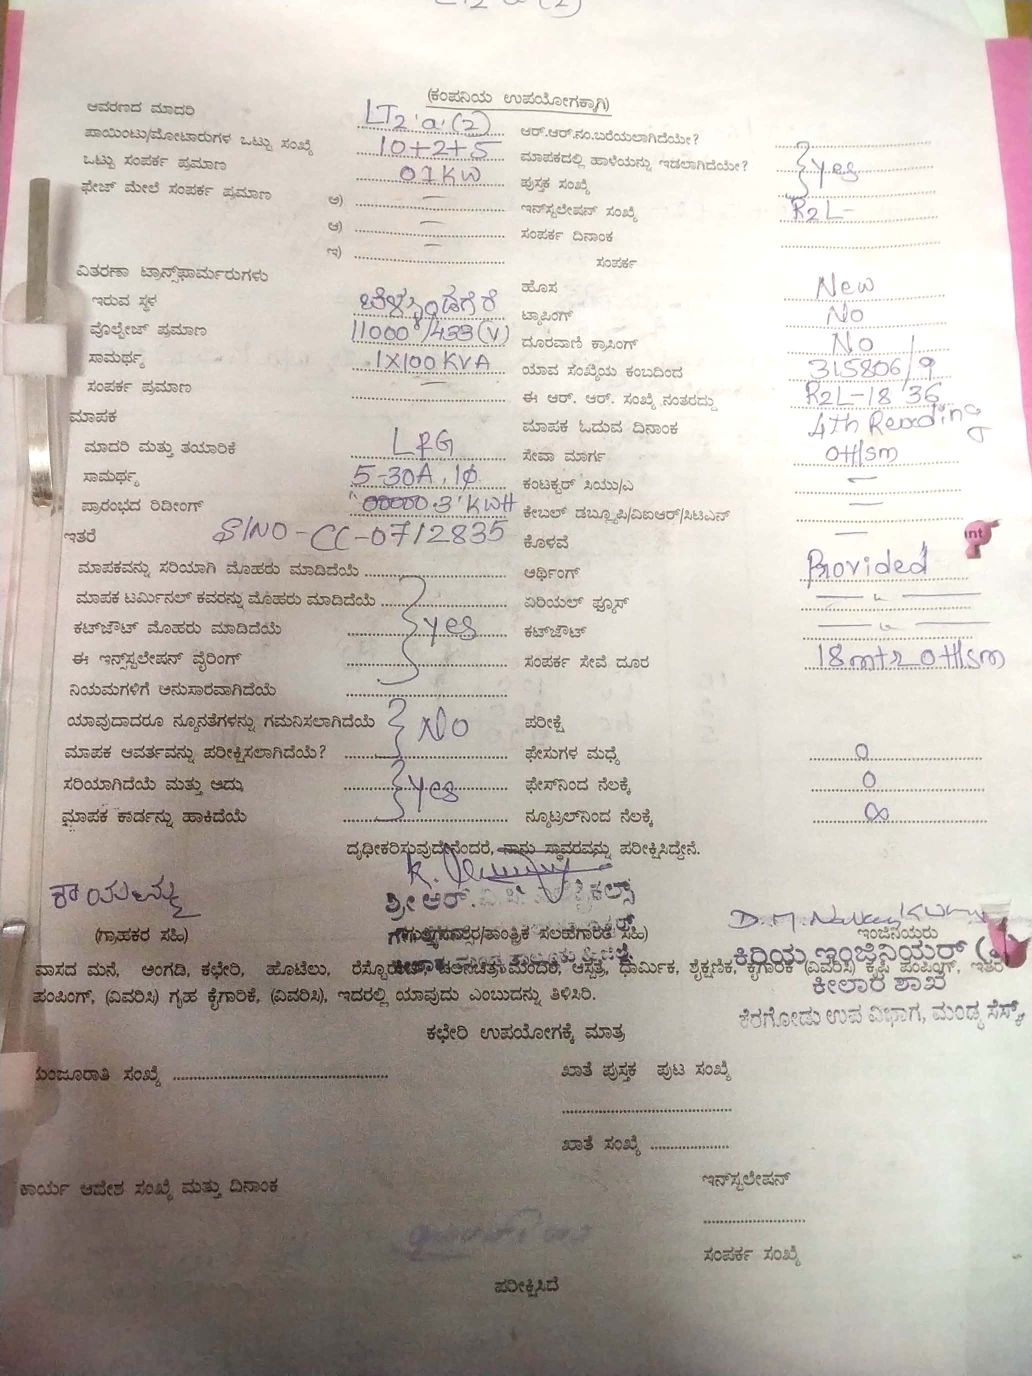 LT2 a (2)
(ಕಂಪನಿಯ ಉಪಯೋಗಕ್ಕಾಗಿ)
ಆವರಣದ ಮಾದರಿ LT2 a (2) ಆರ್.ಆರ್.ನಂ.ಬರೆಯಲಾಗಿದೆಯೇ?
ಪಾಯಿಂಟು/ಮೋಟಾರುಗಳ ಒಟ್ಟು ಸಂಖ್ಯೆ 10+2+5 ಮಾಪಕದಲ್ಲಿ ಹಾಳೆಯನ್ನು ಇಡಲಾಗಿದೆಯೇ? yes
ಒಟ್ಟು ಸಂಪರ್ಕ ಪ್ರಮಾಣ 01KW ಪುಸ್ತಕ ಸಂಖ್ಯೆ
ಫೇಜ್ ಮೇಲೆ ಸಂಪರ್ಕ ಪ್ರಮಾಣ ಅ) — ಇನ್‌ಸ್ಟಲೇಷನ್ ಸಂಖ್ಯೆ R2L-
ಆ) — ಸಂಪರ್ಕ ದಿನಾಂಕ
ಇ) — ಸಂಪರ್ಕ
ವಿತರಣಾ ಟ್ರಾನ್ಸ್‌ಫಾರ್ಮರುಗಳು
ಇರುವ ಸ್ಥಳ ಹೊಸ New
ವೊಲ್ಟೇಜ್ ಪ್ರಮಾಣ 11000/433(V) ಟ್ಯಾಪಿಂಗ್ No
ಸಾಮರ್ಥ್ಯ 1X100KVA ದೂರವಾಣಿ ಕ್ರಾಸಿಂಗ್ No
ಸಂಪರ್ಕ ಪ್ರಮಾಣ — ಯಾವ ಸಂಖ್ಯೆಯ ಕಂಬದಿಂದ 315806/9
ಈ ಆರ್. ಆರ್. ಸಂಖ್ಯೆ ನಂತರದ್ದು R2L-18 36
ಮಾಪಕ ಮಾಪಕ ಓದುವ ದಿನಾಂಕ 4th Reading
ಮಾದರಿ ಮತ್ತು ತಯಾರಿಕೆ L&G ಸೇವಾ ಮಾರ್ಗ OH/sm
ಸಾಮರ್ಥ್ಯ 5-30A, 1ϕ ಕಂಟಕ್ಟರ್ ಸಿಯು/ಎ —
ಪ್ರಾರಂಭದ ರಿಡೀಂಗ್ "00000.3" KWH ಕೇಬಲ್ ಡಬ್ಲ್ಯೂಪಿ/ವಿಐಆರ್/ಸಿಟಿಎನ್ —
ಇತರೆ S/NO-CC-0712835 ಕೊಳವೆ —
ಮಾಪಕವನ್ನು ಸರಿಯಾಗಿ ಮೊಹರು ಮಾಡಿದೆಯೆ ಆರ್ಥಿಂಗ್ Provided
ಮಾಪಕ ಟರ್ಮಿನಲ್ ಕವರನ್ನು ಮೊಹರು ಮಾಡಿದೆಯೆ ಏರಿಯಲ್ ಫ್ಯೂಸ್ — " —
ಕಟ್‌ಔಟ್ ಮೊಹರು ಮಾಡಿದೆಯೆ yes ಕಟ್‌ಔಟ್ — " —
ಈ ಇನ್ಸ್‌ಸ್ಟಲೇಷನ್ ವೈರಿಂಗ್ ಸಂಪರ್ಕ ಸೇವೆ ದೂರ 18mtr OH/sm
ನಿಯಮಗಳಿಗೆ ಅನುಸಾರವಾಗಿದೆಯೆ
ಯಾವುದಾದರೂ ನ್ಯೂನತೆಗಳನ್ನು ಗಮನಿಸಲಾಗಿದೆಯೆ No ಪರೀಕ್ಷೆ
ಮಾಪಕ ಆವರ್ತವನ್ನು ಪರೀಕ್ಷಿಸಲಾಗಿದೆಯೆ? ಫೇಸುಗಳ ಮಧ್ಯೆ 0
ಸರಿಯಾಗಿದೆಯೆ ಮತ್ತು ಅದು yes ಫೇಸ್‌ನಿಂದ ನೆಲಕ್ಕೆ 0
ಮಾಪಕ ಕಾರ್ಡನ್ನು ಹಾಕಿದೆಯೆ ನ್ಯೂಟ್ರಲ್‌ನಿಂದ ನೆಲಕ್ಕೆ ∞
ದೃಢೀಕರಿಸುವುದೇನೆಂದರೆ, ನಾನು ಸ್ಥಾವರವನ್ನು ಪರೀಕ್ಷಿಸಿದ್ದೇನೆ.
ಶ್ರೀ ಆರ್.
(ಗ್ರಾಹಕರ ಸಹಿ) ಸಲಹೆಗಾರರ ಸಹಿ) ಇಂಜಿನಿಯರು
ಕಿರಿಯ ಇಂಜಿನಿಯರ್
ವಾಸದ ಮನೆ, ಅಂಗಡಿ, ಕಛೇರಿ, ಹೊಟೆಲು, ಧಾರ್ಮಿಕ, ಶೈಕ್ಷಣಿಕ, ಕೈಗಾರಿಕೆ (ವಿವರಿಸಿ) ಕೃಷಿ ಪಂಪಿಂಗ್, ಇತರೆ
ಕೀಲಾರ ಶಾಖೆ
ಪಂಪಿಂಗ್, (ವಿವರಿಸಿ) ಗೃಹ ಕೈಗಾರಿಕೆ, (ವಿವರಿಸಿ), ಇದರಲ್ಲಿ ಯಾವುದು ಎಂಬುದನ್ನು ತಿಳಿಸಿರಿ.
ಕೆರಗೋಡು ಉಪ ವಿಭಾಗ, ಮಂಡ್ಯ ಸೆಸ್ಕ್
ಕಛೇರಿ ಉಪಯೋಗಕ್ಕೆ ಮಾತ್ರ
ಮಂಜೂರಾತಿ ಸಂಖ್ಯೆ ಖಾತೆ ಪುಸ್ತಕ ಪುಟ ಸಂಖ್ಯೆ
ಖಾತೆ ಸಂಖ್ಯೆ
ಕಾರ್ಯ ಆದೇಶ ಸಂಖ್ಯೆ ಮತ್ತು ದಿನಾಂಕ ಇನ್‌ಸ್ಟಲೇಷನ್
ಸಂಪರ್ಕ ಸಂಖ್ಯೆ
ಪರೀಕ್ಷಿಸಿದೆ